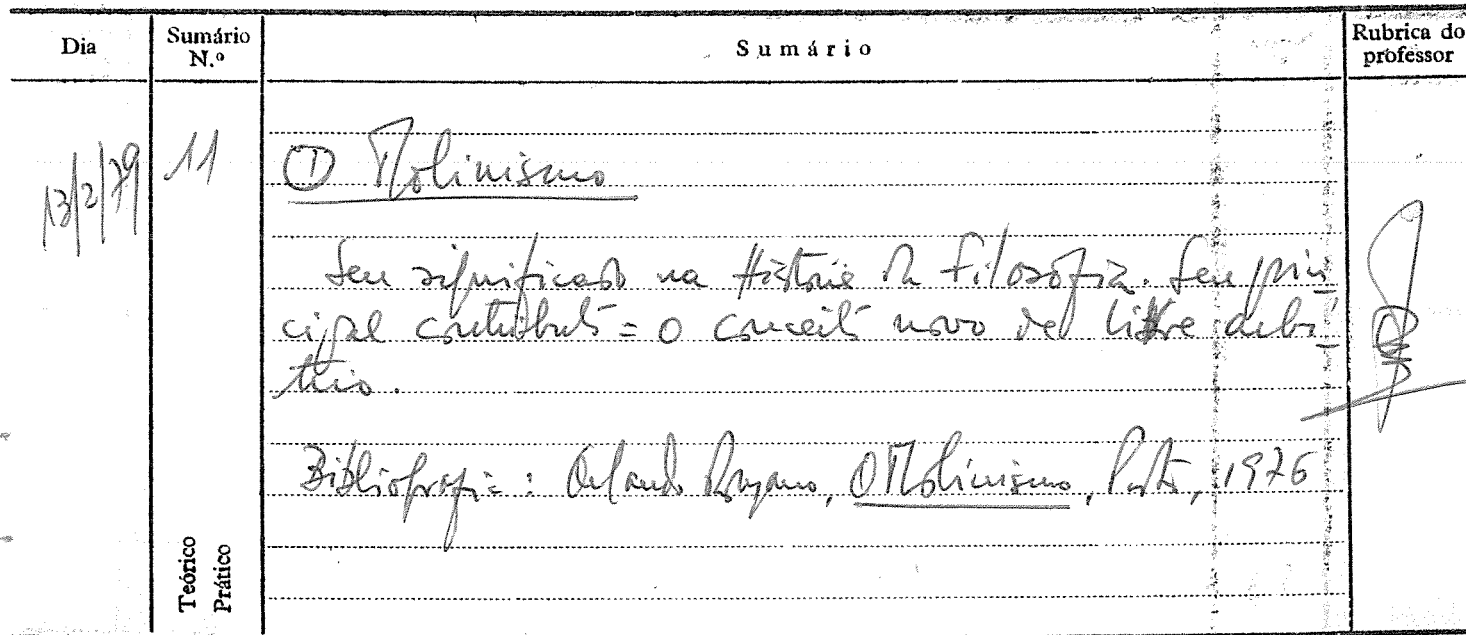 Dia
Sumário N.º
Sumário
Rubrica do professor
13/2/79
11
① Molinismo
Seu significado na História da Filosofia. Seu prin-
cipal contributo = o conceito novo de livre arbí-
trio.
Bibliografia: Orlando Romano, O Molinismo, Porto, 1976
Teórico
Prático